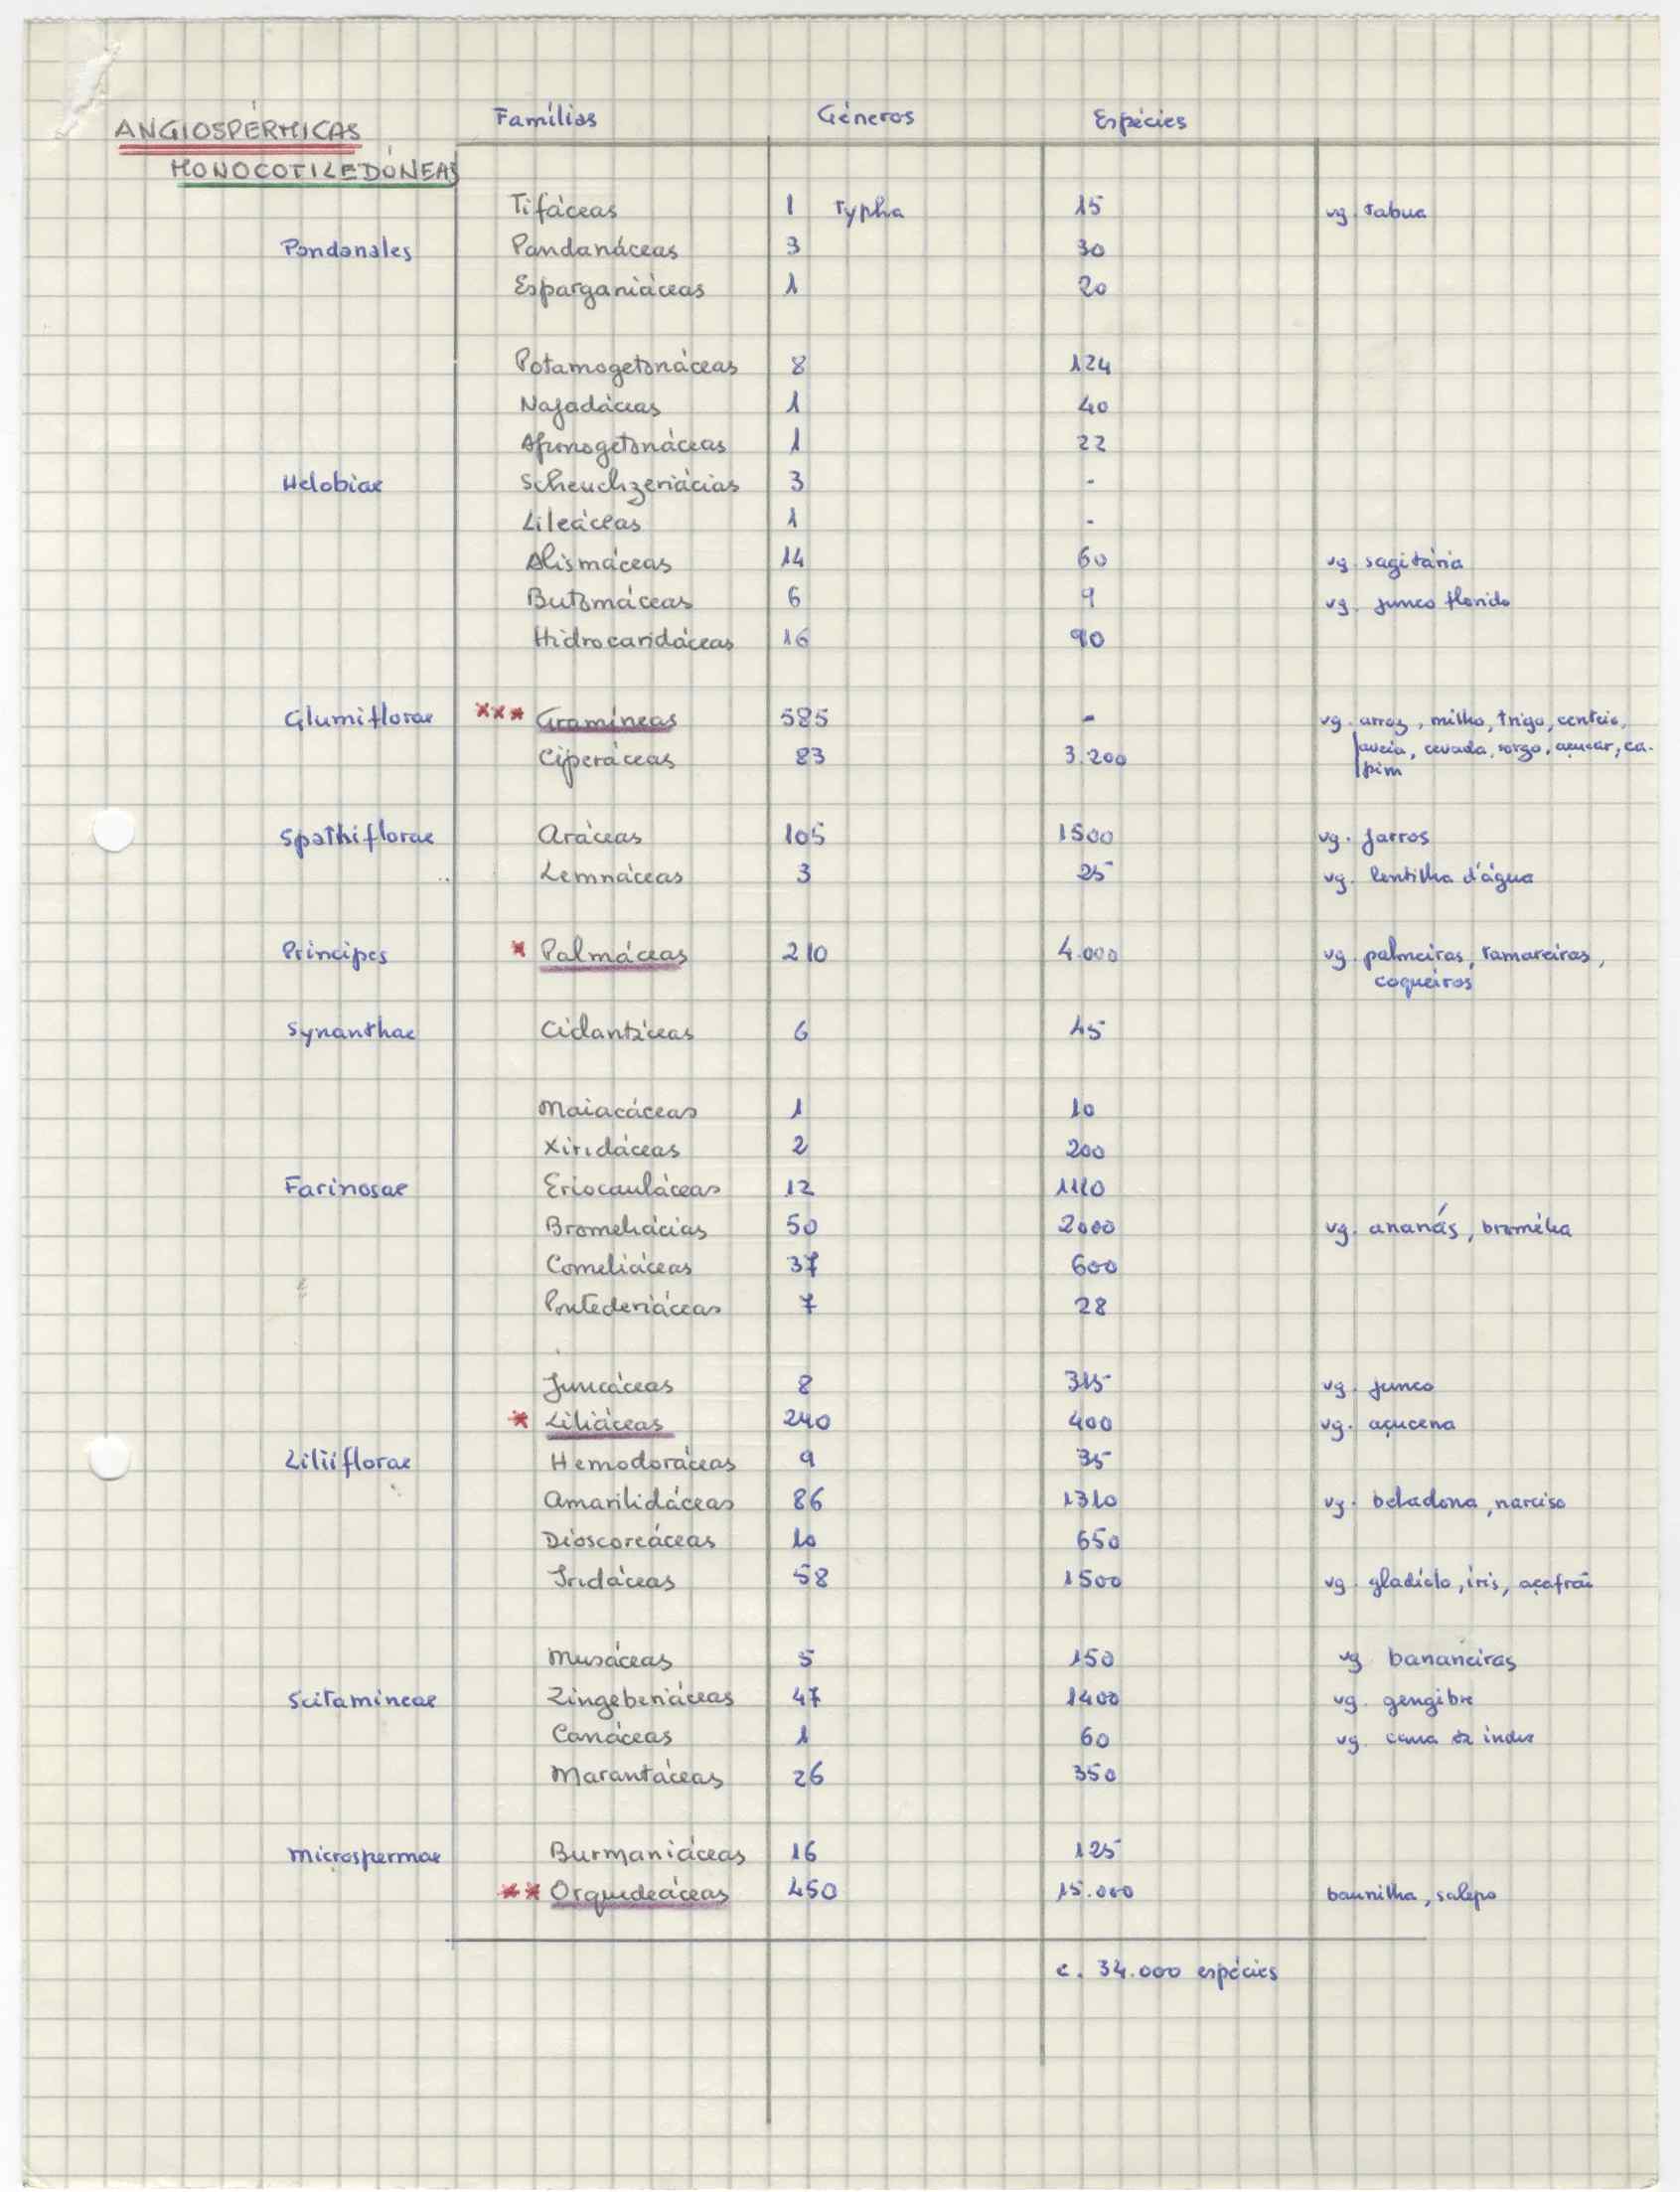 Famílias Géneros Espécies
ANGIOSPÉRMICAS
MONOCOTILEDÓNEAS
Tifáceas 1 Typha 15 vg. tabua
Pandanales Pandanáceas 3 30
Esparganiáceas 1 20
Potamogetonáceas 8 124
Najadáceas 1 40
Aponogetonáceas 1 22
Helobiae Scheuchzeriácias 3 -
Lileáceas 1 -
Alismáceas 14 60 vg. sagitária
Butomáceas 6 9 vg. junco florido
Hidrocaridáceas 16 90
Glumiflorae *** Gramíneas 585 - vg. arroz, milho, trigo, centeio,
aveia, cevada, sorgo, açucar, ca-
pim
Ciperáceas 83 3.200
Spathiflorae Aráceas 105 1500 vg. jarros
Lemnáceas 3 25 vg. lentilha d'água
Principes * Palmáceas 210 4.000 vg. palmeiras, tamareiras,
coqueiros
Synanthae Ciclantáceas 6 45
Maiacáceas 1 10
Xiridáceas 2 200
Farinosae Eriocauláceas 12 1110
Bromeliácias 50 2000 vg. ananás, bromélia
Comeliáceas 37 600
Pontederiáceas 7 28
Juncáceas 8 315 vg. junco
* Liliáceas 240 400 vg. açucena
Liliiflorae Hemodoráceas 9 35
Amarilidáceas 86 1310 vg. beladona, narciso
Dioscoreáceas 10 650
Iridáceas 58 1500 vg. gladíolo, íris, açafrão
Musáceas 5 150 vg bananeiras
Scitamineae Zingeberiáceas 47 1400 vg. gengibre
Canáceas 1 60 vg. cana da india
Marantáceas 26 350
Microspermae Burmaniáceas 16 125
** Orquideáceas 450 15.000 baunilha, salepo
c. 34.000 espécies